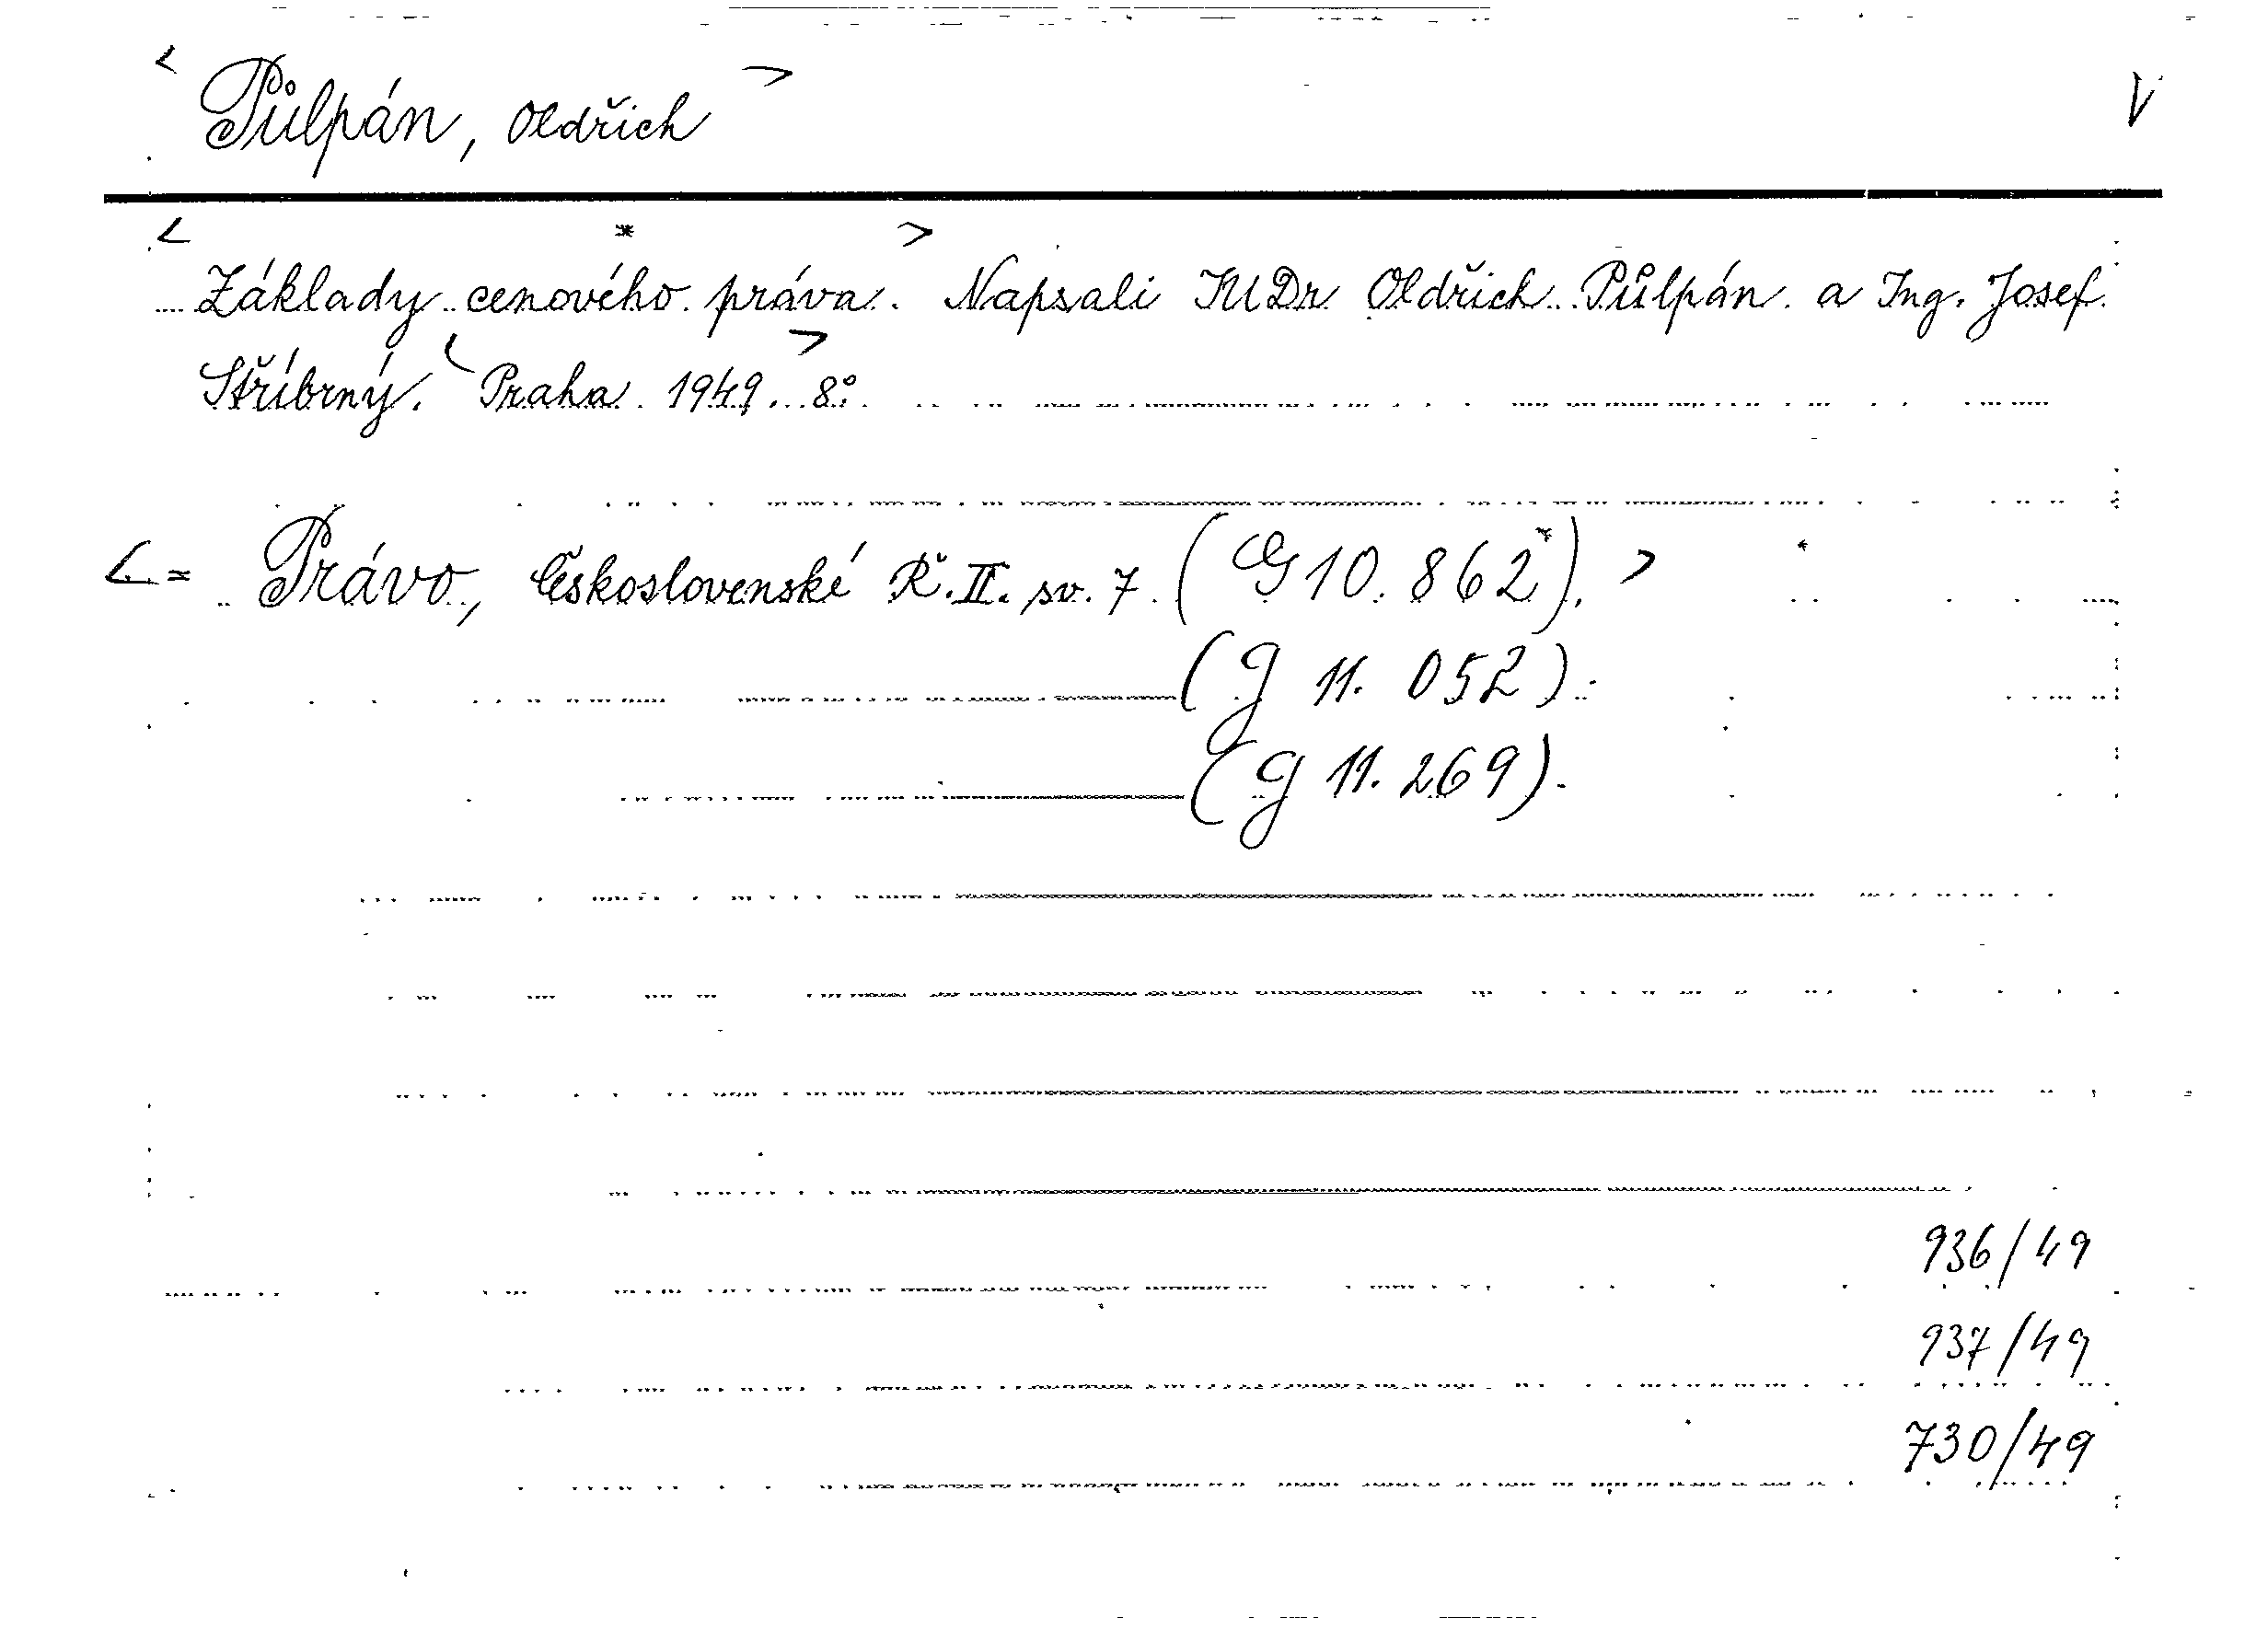 < Půlpán, Oldřich > V
< * >
Základy cenového práva. Napsali JUDr Oldřich Půlpán a Ing. Josef
Stříbrný. < Praha 1949. 8°. >
< = Právo, Československé Ř. II. sv. 7. (G 10.862*). > *
(G 11.052).
(G 11.269).
936/49
937/49
730/49